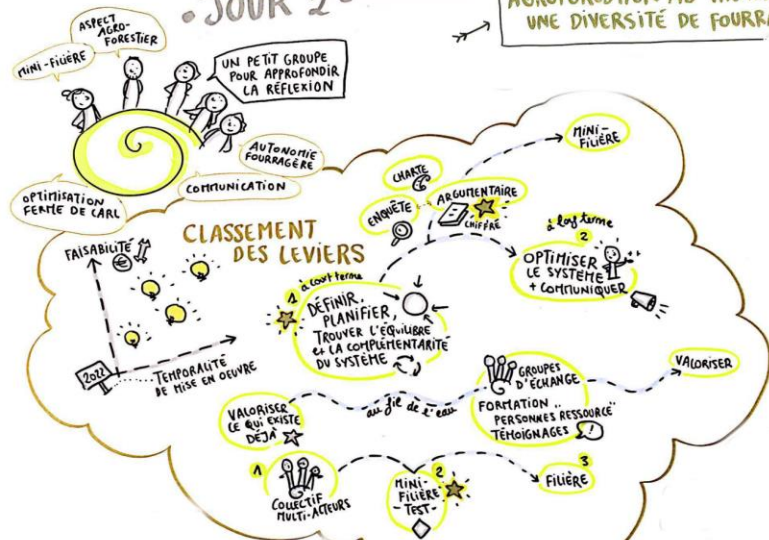 • JOUR 2
UNE DIVERSITÉ DE FOURRA
ASPECT
AGRO-
FORESTIER
MINI-FILIÈRE
UN PETIT GROUPE
POUR APPROFONDIR
LA RÉFLEXION
AUTONOMIE
FOURRAGÈRE
COMMUNICATION
OPTIMISATION
FERME DE CARL
CLASSEMENT
DES LEVIERS
FAISABILITÉ
€
2022
TEMPORALITÉ
DE MISE EN OEUVRE
MINI-
FILIÈRE
CHARTE
ENQUÊTE
ARGUMENTAIRE
CHIFFRÉ
à long terme
2
OPTIMISER
LE SYSTÈME
+ COMMUNIQUER
1
à court terme
DÉFINIR,
PLANIFIER,
TROUVER L'ÉQUILIBRE
et LA COMPLÉMENTARITÉ
DU SYSTÈME
VALORISER
CE QUI EXISTE
DÉJÀ
au fil de l'eau
GROUPES
D'ÉCHANGE
FORMATION
"PERSONNES RESSOURCE"
TÉMOIGNAGES
!
VALORISER
1
COLLECTIF
MULTI-ACTEURS
2
MINI-
FILIÈRE
- TEST -
3
FILIÈRE